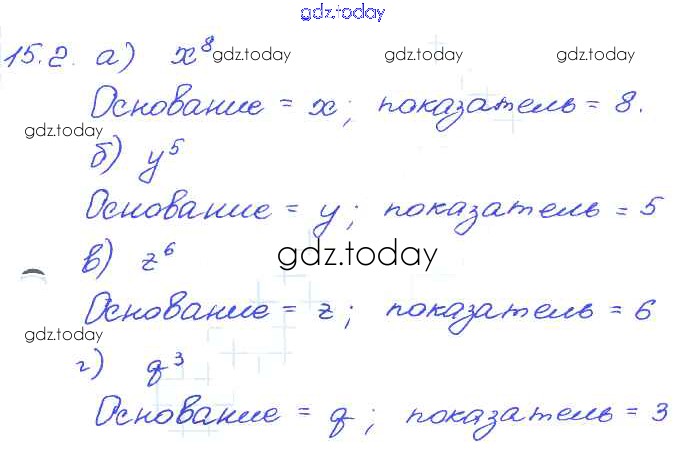 gdz.today
15.2. а) x⁸ gdz.today
Основание = x; показатель = 8.
gdz.today
б) y⁵
Основание = y; показатель = 5
в) z⁶
gdz.today
Основание = z; показатель = 6
gdz.today
г) q³
Основание = q; показатель = 3